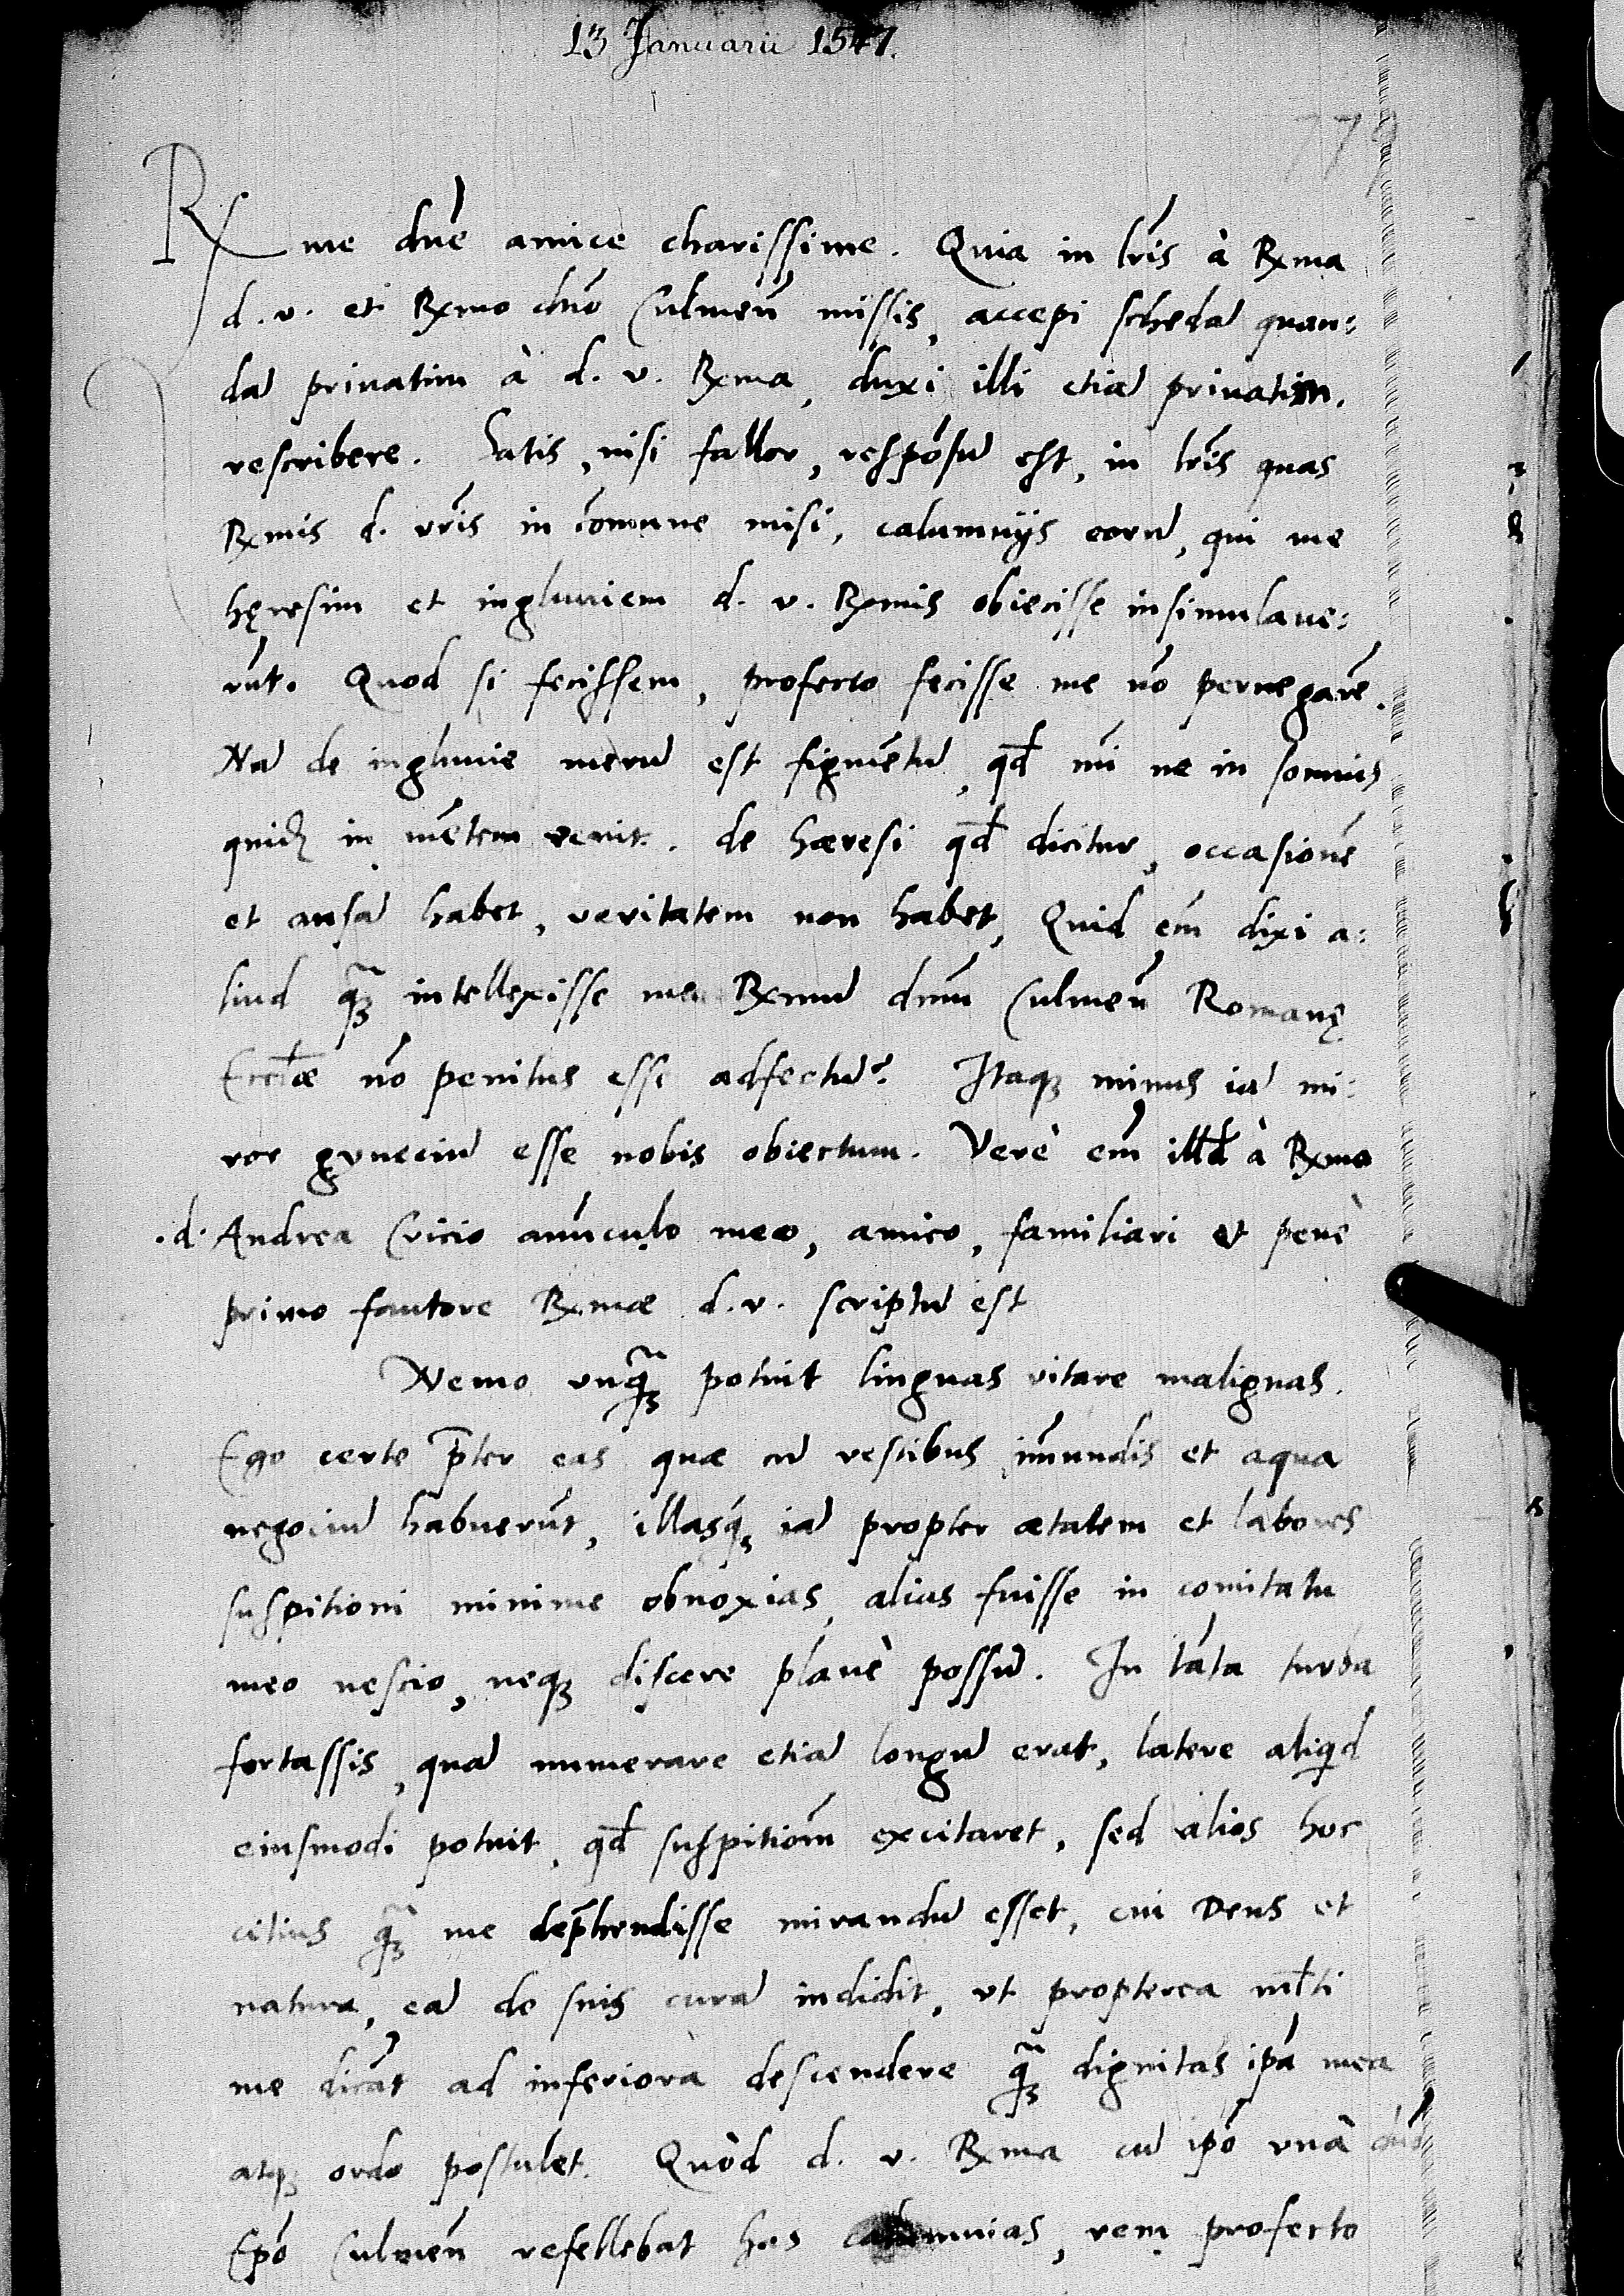 13 Januarii 1547.
779
Rxme dnē amice charissime. Quia in lrīs à Rxma
d. v. et Rxmo dnō Culmeñ missis, accepi schedā quan:
dā priuatim à d. v. Rxma, duxi illi etiā priuatim.
rescribere. Satis, nisi fallor, respōsū est, in lrīs quas
Rxmis d. vrīs in cōmune misi, calumnijs eorū, qui me
hęresim et ingluuiem d. v. Rxmis obiecisse insimulaue:
rūt. Quod si fecissem, profecto fecisse me nō pernegarē.
Nā de ingluuie merū est figmētū, qd̄ mī ne in somnis
quidꝫ in mētem venit. de hæresi qd̄ dicitur, occasionē
et ansā habet, veritatem non habet, Quid em̄ dixi a:
liud q̃ꝫ intellexisse me Rxmū dnm̄ Culmeñ Romanę
Eccłæ nō penitus esse adfectū? Itaqꝫ minus iā mi:
ror gyneciū esse nobis obiectum. Verè em̄ illd̄ à Rxmo
.d. Andrea Cricio auūculo meo, amico, familiari et penè
primo fautore Rxmæ d. v. scriptū est
Nemo vnq̃ꝫ potuit linguas vitare malignas.
Ego certe p̄ter eas quæ cū vestibus īmundis et aqua
negociū habuerūt, illasq́ꝫ iā propter ætatem et labores
suspitioni minime obnoxias, alias fuisse in comitatu
meo nescio, neqꝫ discere planè possū. In tāta turba
fortassis, quā numerare etiā longū erat, latere aliqd
eiusmodi potuit, qd̄ suspitiom̄ excitaret, sed alios hoc
citius q̃ꝫ me dep̄hendisse mirandū esset, cui Deus et
natura, eā de suis curā indidit, vt propterea mł̄ti
me dicāt ad inferiora descendere q̃ꝫ dignitas ipā mea
atqꝫ ordo postulet. Quòd d. v. Rxma cū ipō vnà dnō
Epō Culmeñ refellebat has calumnias, rem profecto